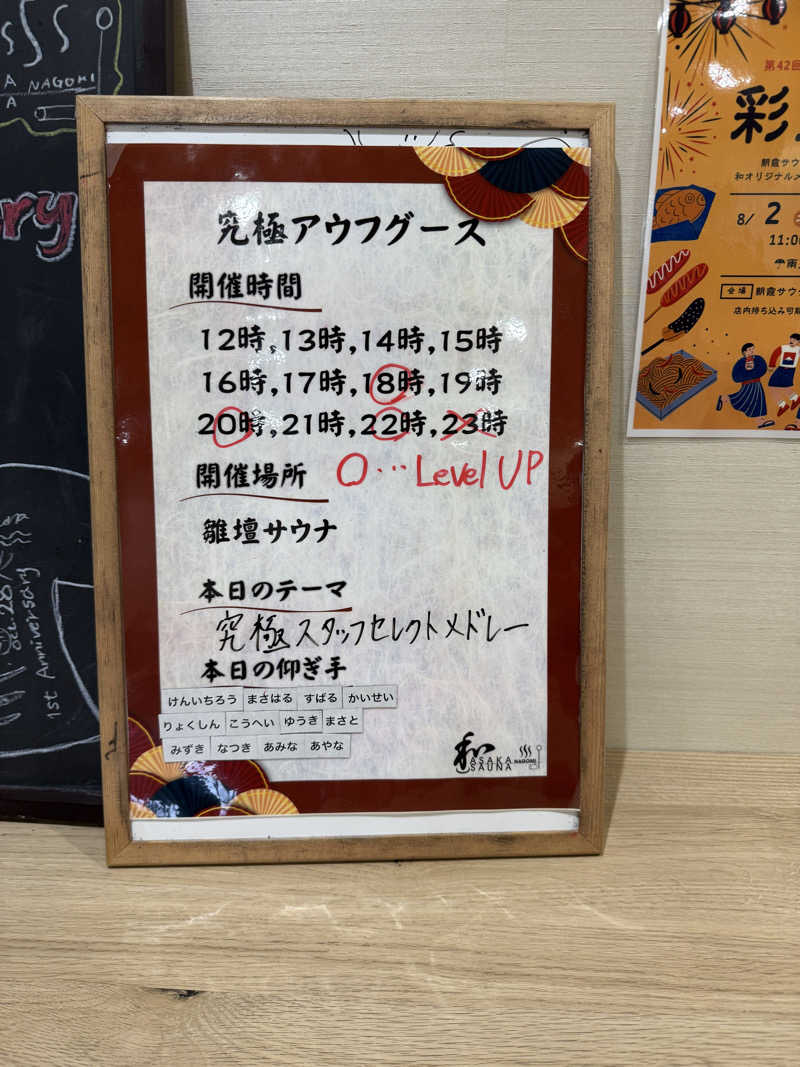 NAGOMI
究極アウフグース
開催時間
12時,13時,14時,15時
16時,17時,18時,19時
20時,21時,22時,23時
開催場所
○…Level UP
雛壇サウナ
本日のテーマ
究極スタッフセレクトメドレー
本日の仰ぎ手
けんいちろう まさはる すばる かいせい
りょくしん こうへい ゆうき まさと
みずき なつき あみな あやな
和
ASAKA
SAUNA
NAGOMI
Oct.28
1st Anniversary
第42回
彩
朝霞サウ
和オリジナルメ
8/ 2
11:00
会場 朝霞サウナ
店内持ち込み可能